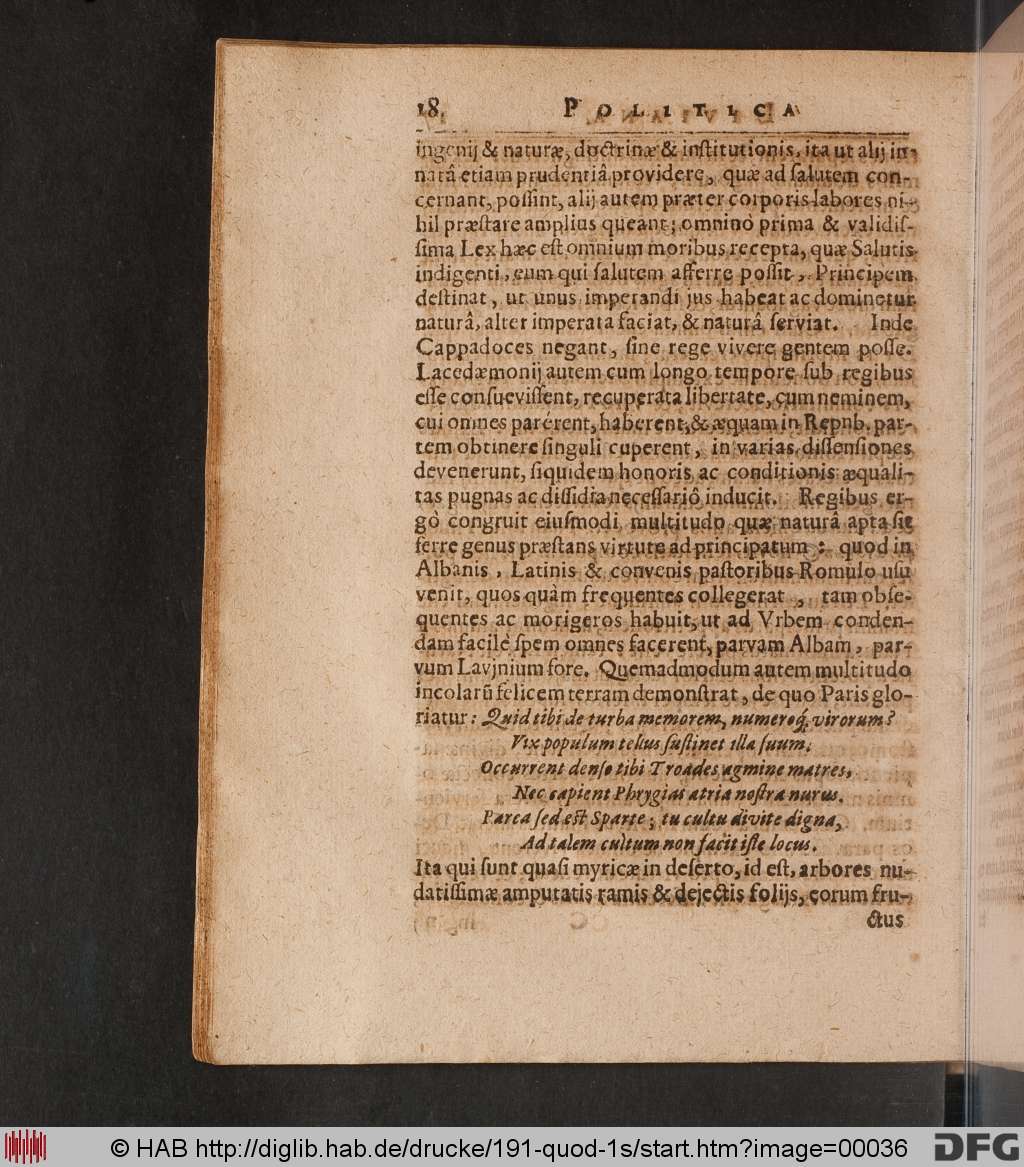 18. POLITICA
ingenij & naturæ, doctrinæ & inſtitutionis, ita ut alij in-
natâ etiam prudentiâ providere, quæ ad ſalutem con-
cernant, poſſint, alij autem præter corporis labores ni-
hil præſtare amplius queant; omninò prima & validiſ-
ſima Lex hæc eſt omnium moribus recepta, quæ Salutis
indigenti, eum qui ſalutem afferre poſſit, Principem
deſtinat, ut unus imperandi jus habeat ac dominetur
naturâ, alter imperata faciat, & naturâ ſerviat. Inde
Cappadoces negant, ſine rege vivere gentem poſſe.
Lacedæmonij autem cum longo tempore ſub regibus
eſſe conſueviſſent, recuperata libertate, cum neminem,
cui omnes parérent, haberent, & æquam in Repub. par-
tem obtinere ſinguli cuperent, in varias diſſenſiones
devenerunt, ſiquidem honoris ac conditionis æquali-
tas pugnas ac diſſidia neceſſariò inducit. Regibus er-
gò congruit eiuſmodi multitudo quæ naturâ apta ſit
ferre genus præſtans virtute ad principatum: quod in
Albanis, Latinis & convenis paſtoribus Romulo uſu
venit, quos quàm frequentes collegerat, tam obſe-
quentes ac morigeros habuit, ut ad Vrbem conden-
dam facilè ſpem omnes facerent, parvam Albam, par-
vum Lavjnium fore. Quemadmodum autem multitudo
incolarū felicem terram demonſtrat, de quo Paris glo-
riatur: Quid tibi de turba memorem, numeroq́, virorum?
Vix populum tellus ſuſtinet illa ſuum,
Occurrent denſo tibi Troades agmine matres,
Nec capient Phrygias atria noſtra nurus.
Parca ſed eſt Sparte; tu cultu divite digna,
Ad talem cultum non facit iſte locus.
Ita qui ſunt quaſi myricæ in deſerto, id eſt, arbores nu-
datiſſimæ amputatis ramis & dejectis folijs, eorum fru-
ctus
© HAB http://diglib.hab.de/drucke/191-quod-1s/start.htm?image=00036
DFG